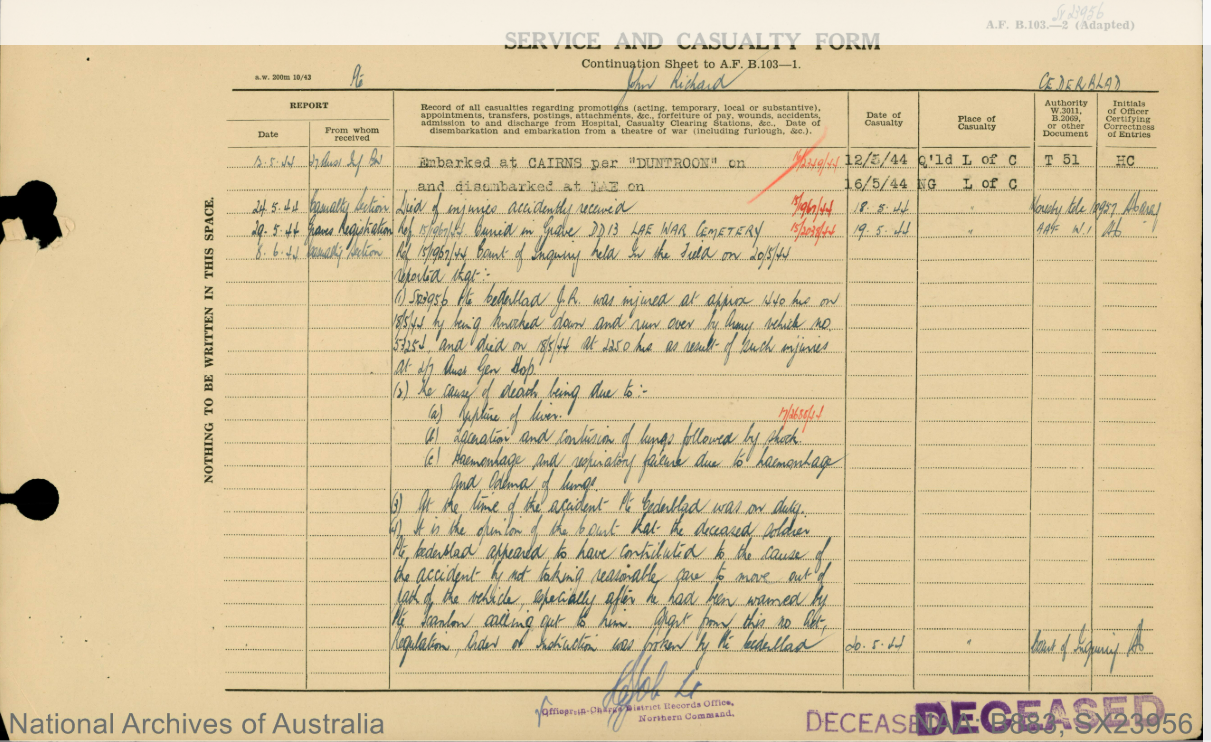 SX23956
A.F. B.103.—2 (Adapted)
SERVICE AND CASUALTY FORM
Continuation Sheet to A.F. B.103—1.
a.w. 200m 10/43
Pte
John Richard
CEDERBLAD
NOTHING TO BE WRITTEN IN THIS SPACE.
REPORT
Date
From whom received
Record of all casualties regarding promotions (acting, temporary, local or substantive),
appointments, transfers, postings, attachments, &c., forfeiture of pay, wounds, accidents,
admission to and discharge from Hospital, Casualty Clearing Stations, &c., Date of
disembarkation and embarkation from a theatre of war (including furlough, &c.).
Date of Casualty
Place of Casualty
Authority W.3011, B.2069, or other Document
Initials of Officer Certifying Correctness of Entries
Embarked at CAIRNS per "DUNTROON" on 12/5/44 Q'ld L of C T 51 HC
and disembarked at LAE on 16/5/44 NG L of C
24.5.44 Casualty Section Died of injuries accidently received 15/1967/44 18.5.44 "
29.5.44 Graves Registration Ref 15/1967/44 Buried in Grave DD13 LAE WAR CEMETERY 19.5.44 " AAF W.1
8.6.44 Casualty Section Ref 15/1967/44 Court of Inquiry held In the Field on 20/5/44
reported that:-
(1) SX23956 Pte Cederblad J.R. was injured at approx 1440 hrs on
18/5/44 by being knocked down and run over by Army vehicle no.
53254, and died on 18/5/44 at 2250 hrs as result of such injuries
at 2/7 Aust Gen Hop.
(2) The cause of death being due to:-
(a) Rupture of liver.
(b) Laceration and contusion of lungs followed by shock.
(c) Haemorrhage and respiratory failure due to haemorrhage
and Odema of lungs.
(3) At the time of the accident Pte Cederblad was on duty.
(4) It is the opinion of the Court that the deceased soldier
Pte Cederblad appeared to have contributed to the cause of
the accident by not taking reasonable care to move out of
path of the vehicle, especially after he had been warned by
Pte Scanlon calling out to him. Apart from this no Act,
Regulation, Order or Instruction was broken by Pte Cederblad 20.5.44 " Court of Inquiry
Officer-in-Charge District Records Office,
Northern Command.
DECEASED
DECEASED
National Archives of Australia
NAA: B883, SX23956